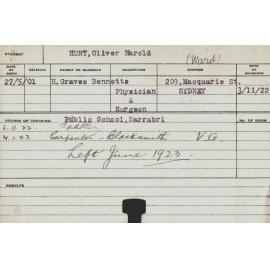 STUDENT HUNT, Oliver Harold (Ward)
DATE OF BIRTH RELIGION PARENT OR GUARDIAN OCCUPATION ADDRESS DATE OF
27/5/01 H.Graves Bennetts Physician 209, Macquarie St.
& SYDNEY 3/11/22
Surgeon
COURSE OF TRAINING Public School, Narrabri NO. OF ROOM
6.11.22. Saddler
4.1.23. Carpenter - Blacksmith V.G.
Left June 1923.
RESULTS